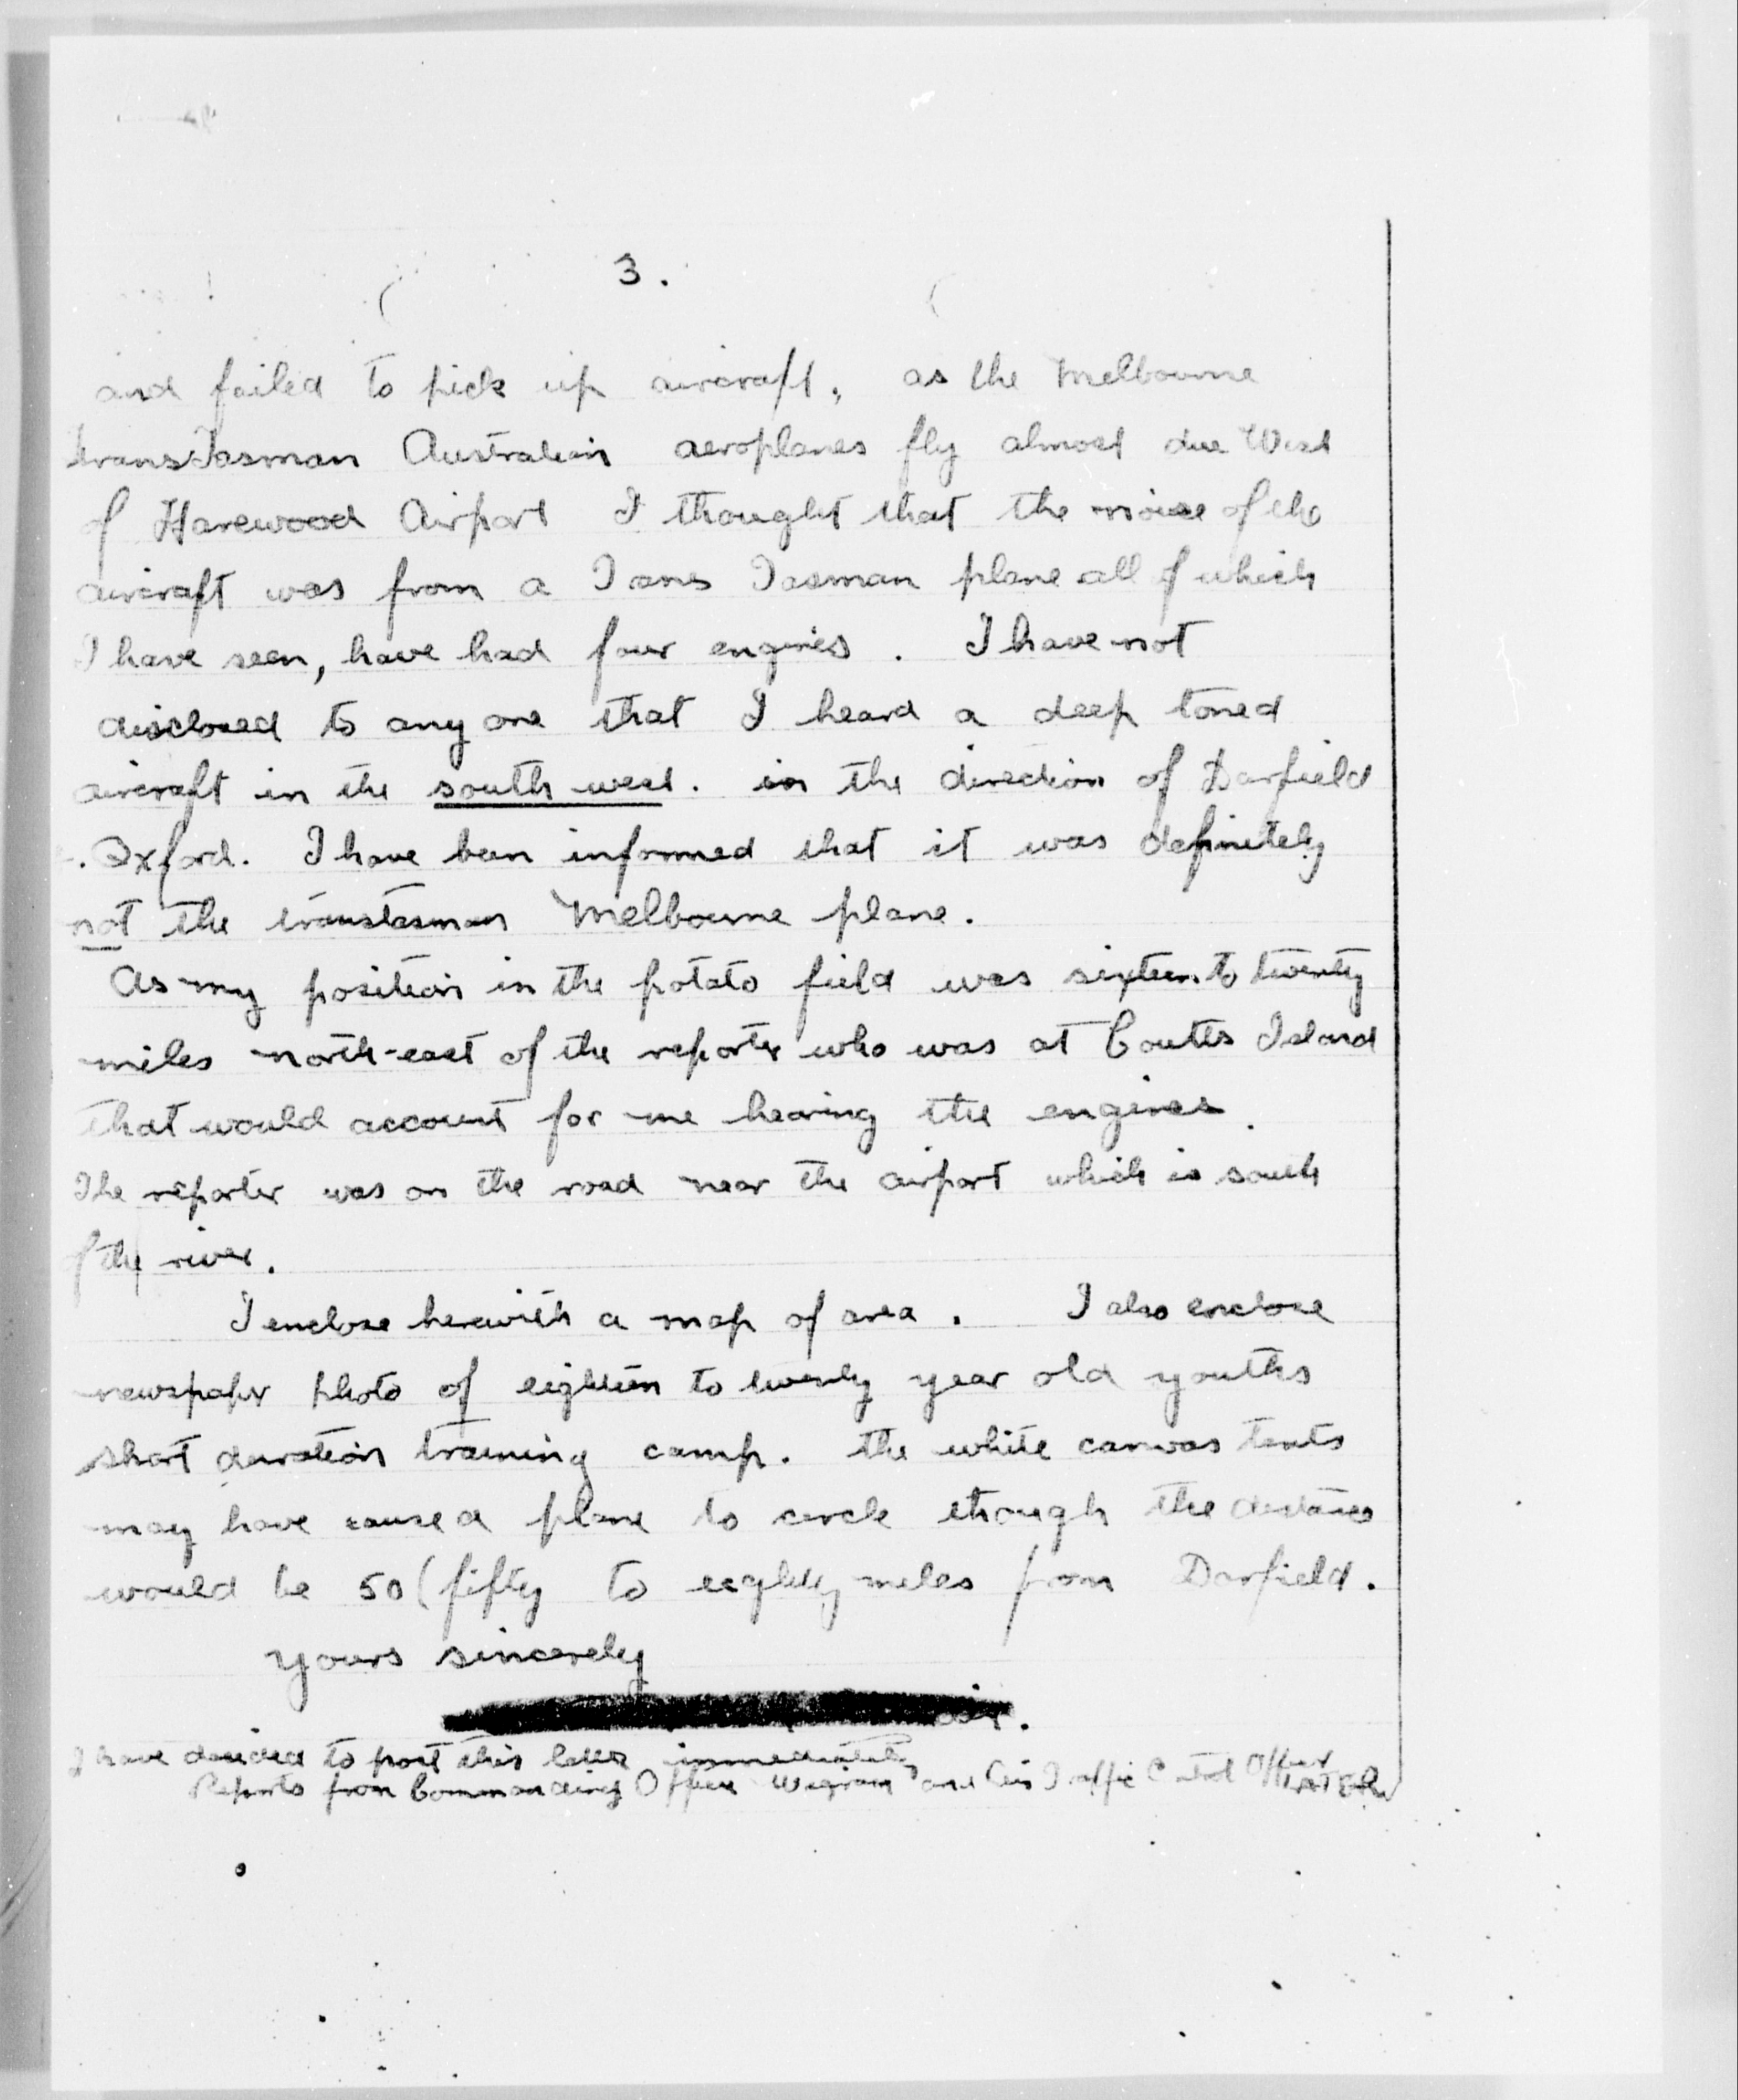 3.
and failed to pick up aircraft, as the Melbourne
transTasman Australian aeroplanes fly almost due West
of Harewood Airport I thought that the noise of the
aircraft was from a Trans Tasman plane all of which
I have seen, have had four engines. I have not
disclosed to any one that I heard a deep toned
aircraft in the south west. in the direction of Darfield
. Oxford. I have been informed that it was definitely
not the transtasman Melbourne plane.
As my position in the potato field was sixteen to twenty
miles north-east of the reporter who was at Coutts Island
that would account for me hearing the engines.
The reporter was on the road near the airport which is south
of the river.
I enclose herewith a map of area. I also enclose
newspaper photo of eighteen to twenty year old youths
short duration training camp. the white canvas tents
may have caused plane to circle though the distance
would be 50 (fifty to eighty miles from Darfield.
yours sincerely
I have decided to post this letter immediately
Reports from Commanding Officer Wigram and Air Traffic Control Officer LATER